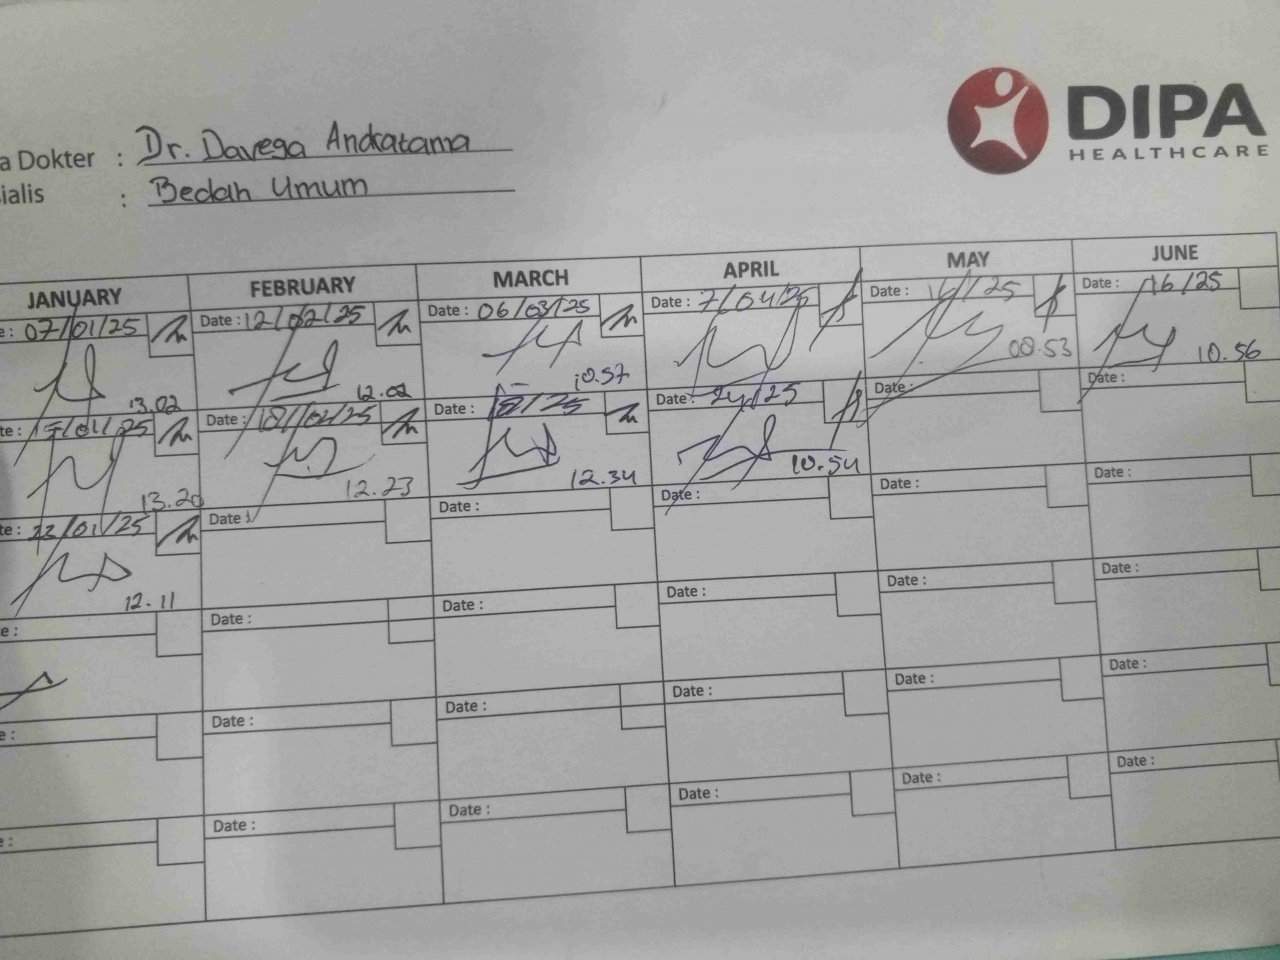 DIPA
HEALTHCARE
a Dokter : Dr. Davega Andratama
ialis : Bedah Umum
JANUARY FEBRUARY MARCH APRIL MAY JUNE
e: 07/01/25 Date : 12/02/25 Date : 06/03/25 Date : 7/04/25 Date : Date : 16/25
13.02 12.02 10.57 08.53 10.56
te: Date : 18/02/25 Date : Date : 24/25 Date : Date :
13.20 12.23 12.34 10.54
te: 22/01/25 Date : Date : Date : Date : Date :
12.11
e: Date : Date : Date : Date : Date :
e: Date : Date : Date : Date : Date :
e: Date : Date : Date : Date : Date :